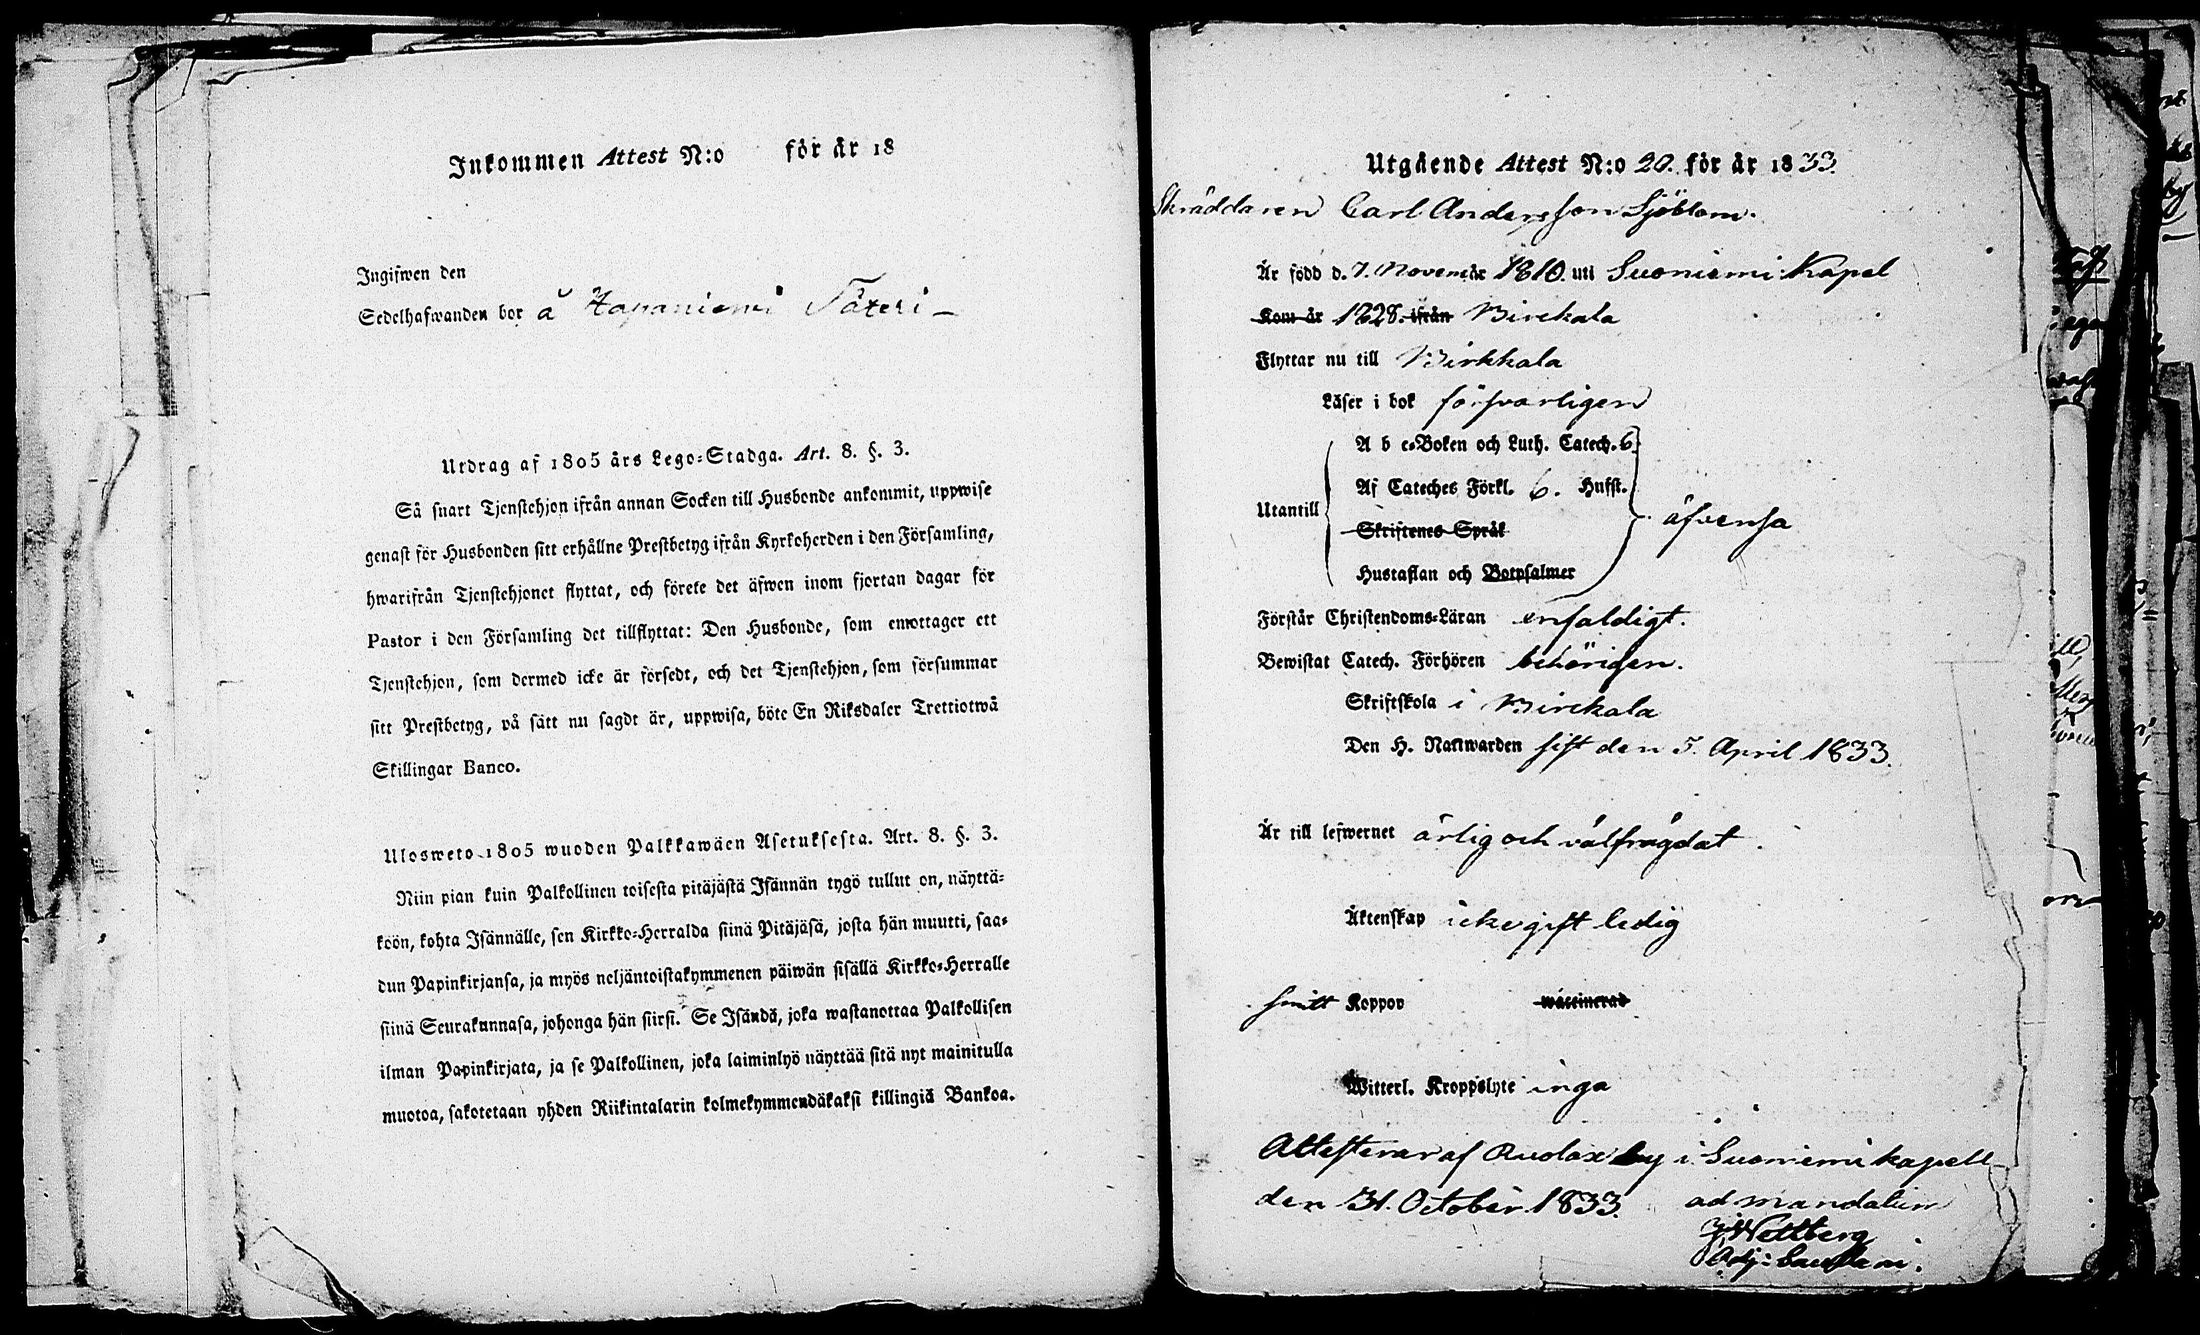 Inkommen Attest N:o för år 18
Ingifwen den
Sedelhafwanden bor å Hapaniemi Säteri
Utdrag af 1805 års Lego-Stadga. Art. 8. §. 3.
Så snart Tjenstehjon ifrån annan Socken till Husbonde ankommit, uppwise
genast för Husbonden sitt erhållne Prestbetyg ifrån Kyrkoherden i den Församling,
hwarifrån Tjenstehjonet flyttat, och förete det äfwen inom fjortan dagar för
Pastor i den Församling det tillflyttat: Den Husbonde, som emottager ett
Tjenstehjon, som dermed icke är försedt, och det Tjenstehjon, som försummar
sitt Prestbetyg, på sätt nu sagdt är, uppwisa, böte En Riksdaler Trettiotwå
Skillingar Banco.
Ulosweto 1805 wuoden Palkkawäen Asetuksesta. Art. 8. §. 3.
Niin pian kuin Palkollinen toisesta pitäjästä Isännän tygö tullut on, näyttä-
köön, kohta Isännälle, sen Kirkko-Herralda siinä Pitäjäsä, josta hän muutti, saa-
dun Papinkirjansa, ja myös neljäntoistakymmenen päiwän sisällä Kirkko-Herralle
siinä Seurakunnasa, johonga hän siirsi. Se Isändä, joka wastanottaa Palkollisen
ilman Papinkirjata, ja se Palkollinen, joka laiminlyö näyttää sitä nyt mainitulla
muotoa, sakotetaan yhden Riikintalarin kolmekymmendäkaksi killingiä Bankoa.
Utgående Attest N:o 20. för år 1833.
Skräddaren Carl Andersson Sjöblom.
Är född d. 7. Novembr år 1810. uti Suoniemi Kapel
Kom år 1828. ifrån Birckala
Flyttar nu till Birkkala
Läser i bok försvarligen
A b c-Boken och Luth. Catech. 6.
Af Cateches Förkl. 6. Hufst.
Utantill äfvensa
Skriftenes Språk
Hustaflan och Botpsalmer
Förstår Christendoms-Läran enfaldigt.
Bewistat Catech. Förhören behörigen.
Skriftskola i Birckala
Den H. Nattwarden sist den 5. April 1833.
Är till lefwernet ärlig och välfrägdat.
Äktenskap icke gift ledig
Haft Koppor waccinerad
Witterl. Kroppslyte inga
Attesterar af by i Suoniemi kapell
den 31. October 1833. ad mandatum
Wellberg
Adj: